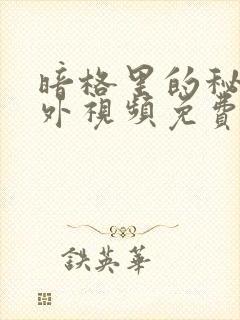 暗格里的秘
外視頻免費
鉄英華